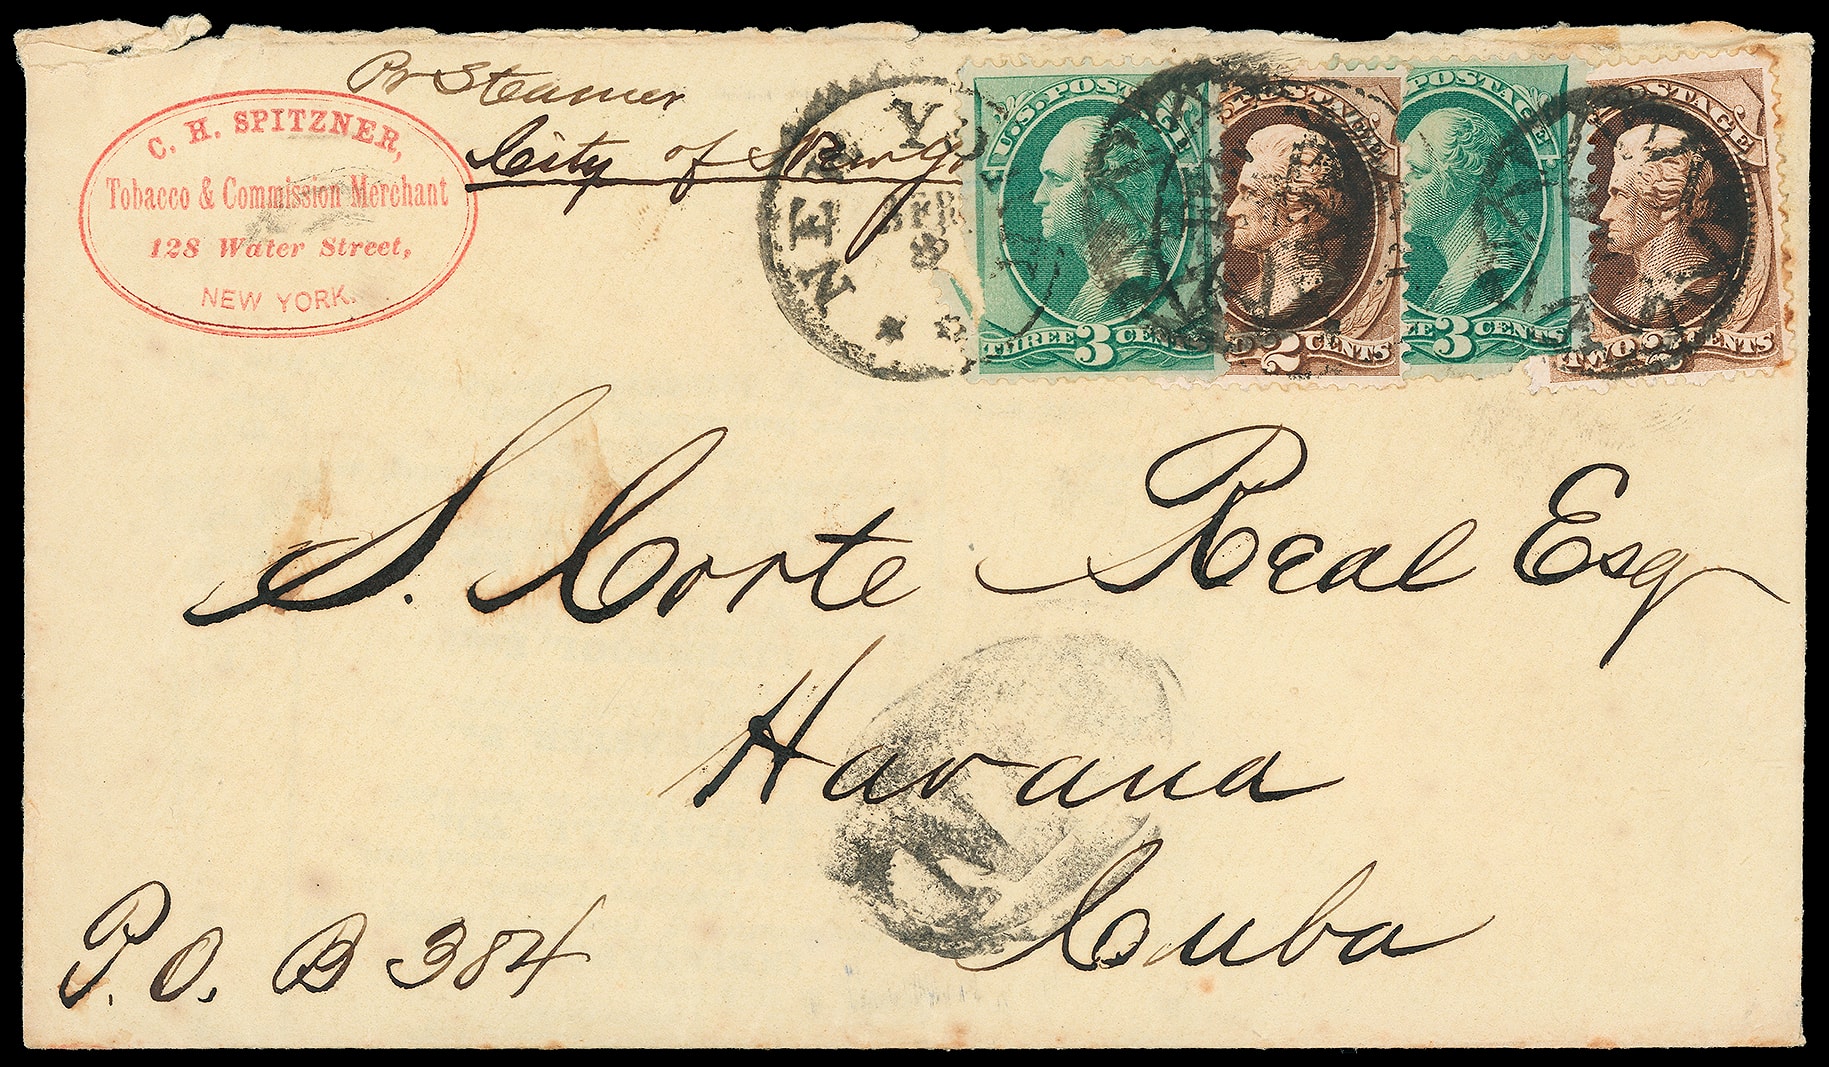 Pr Steamer
City of New Yo
C. H. SPITZNER,
Tobacco & Commission Merchant
128 Water Street,
NEW YORK.
NEW Y
SEP
U.S. POSTAGE
THREE 3 CENTS
2 CENTS
POSTAGE
3 CENTS
POSTAGE
TWO 2 CENTS
S. Corte Real Esq
Havana
Cuba
P. O. B 384